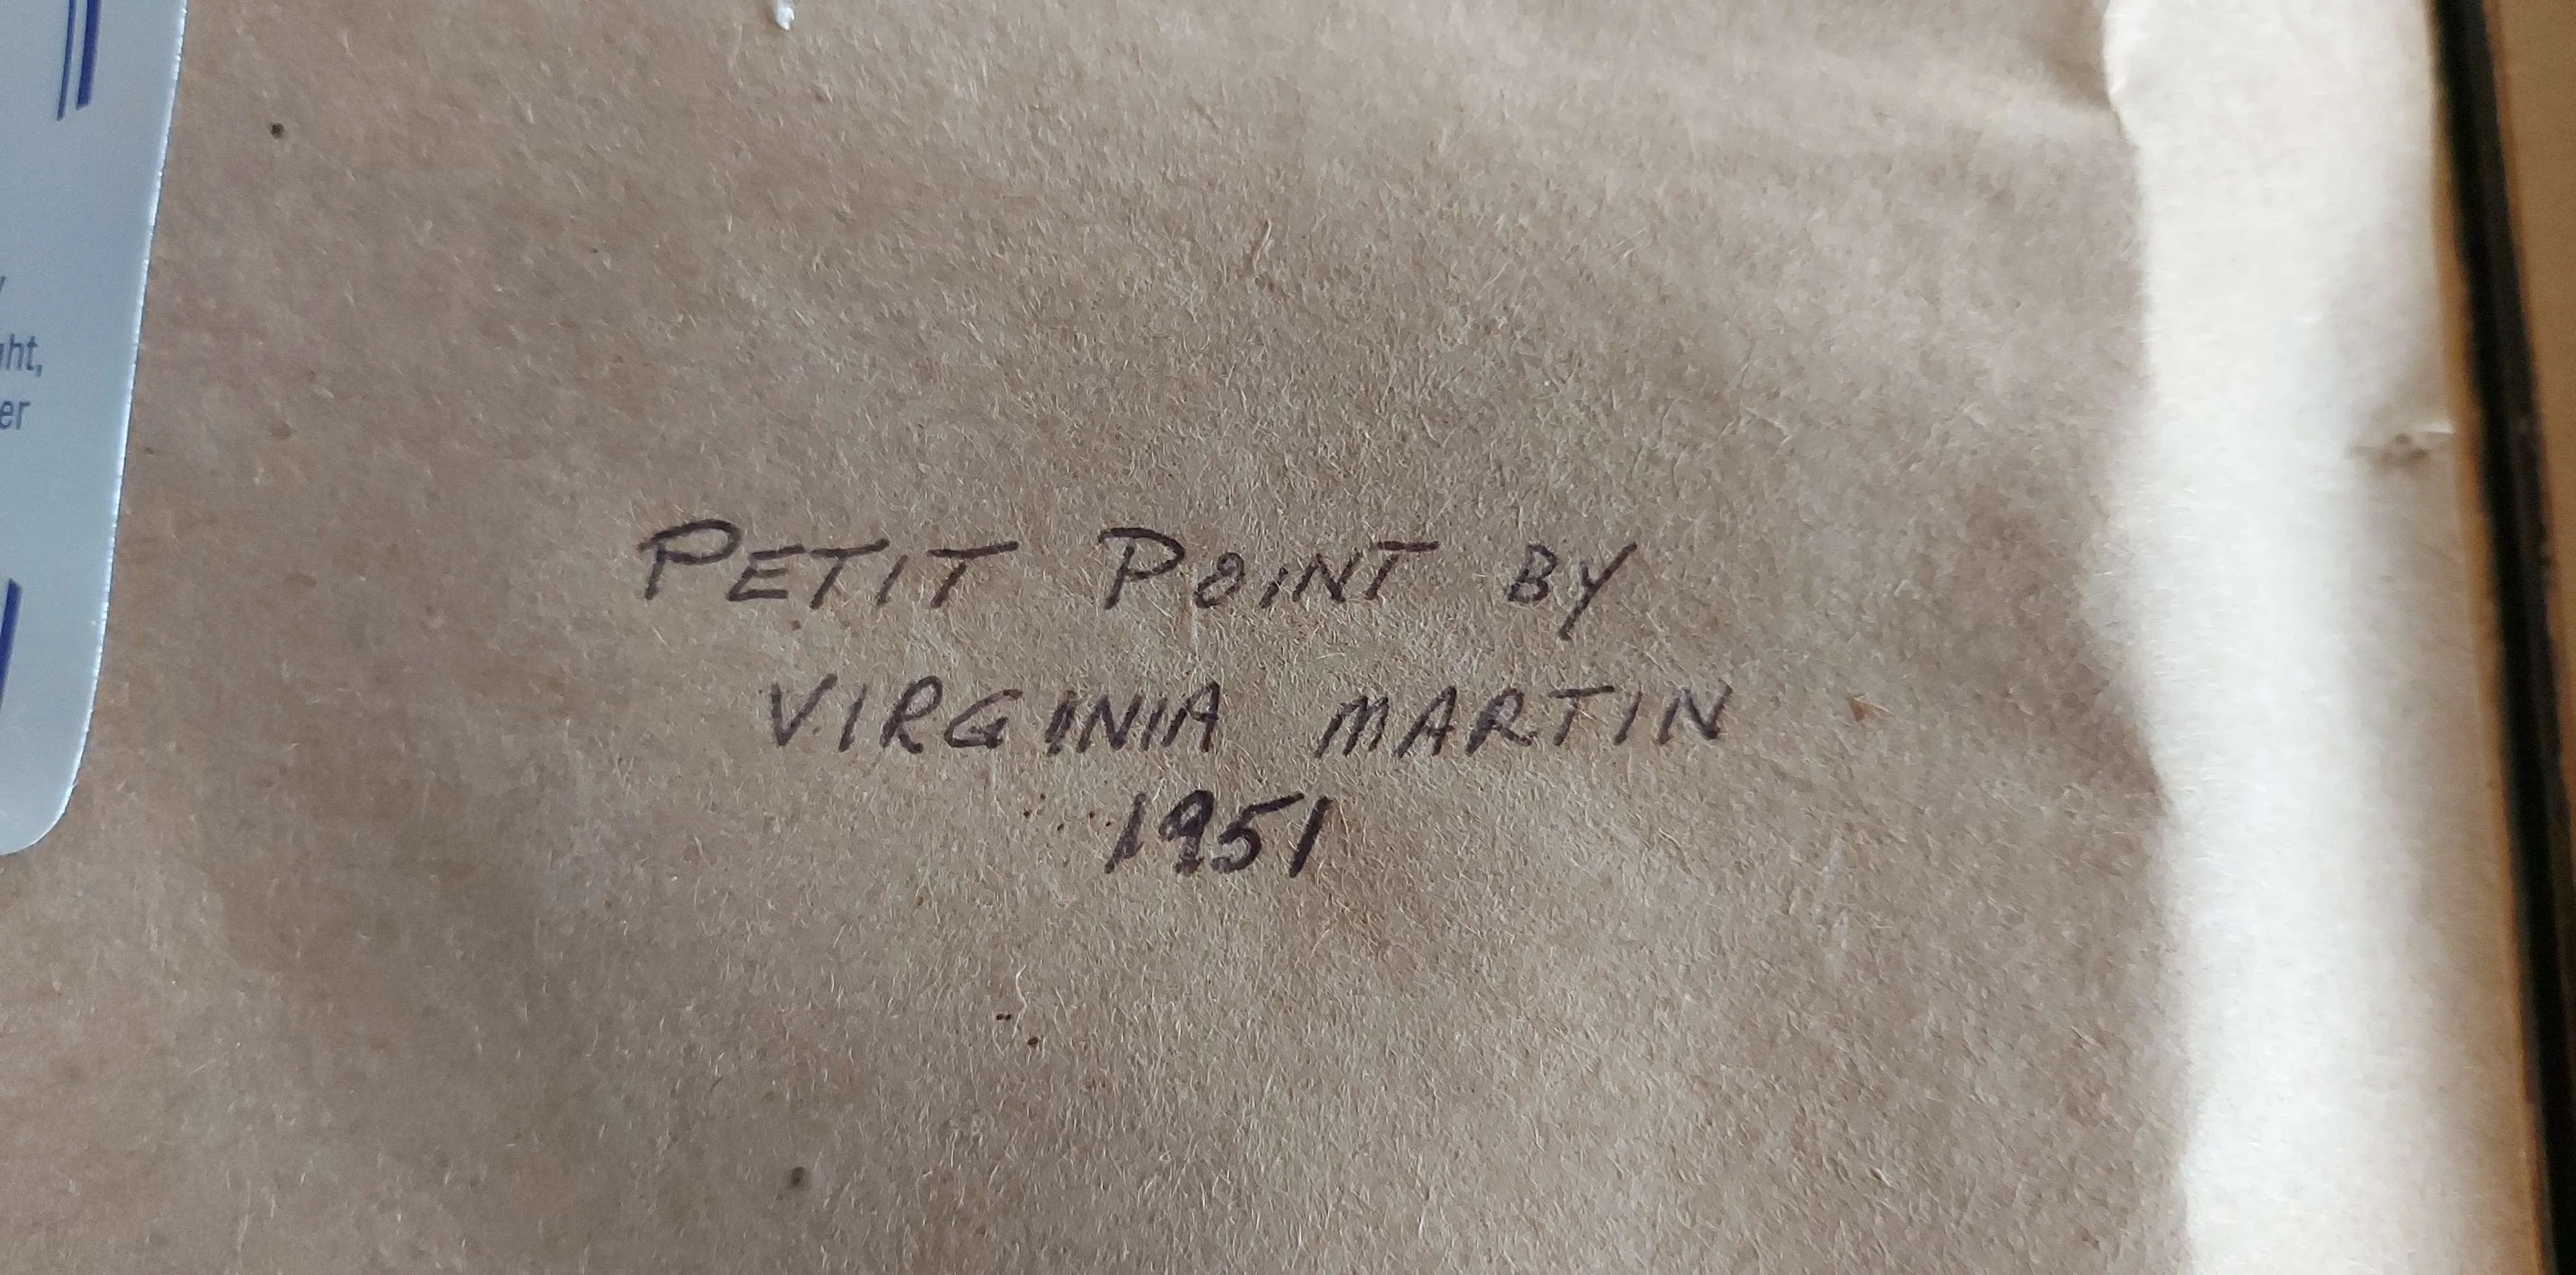 ht,
er
PETIT POINT BY
VIRGINIA MARTIN
1951